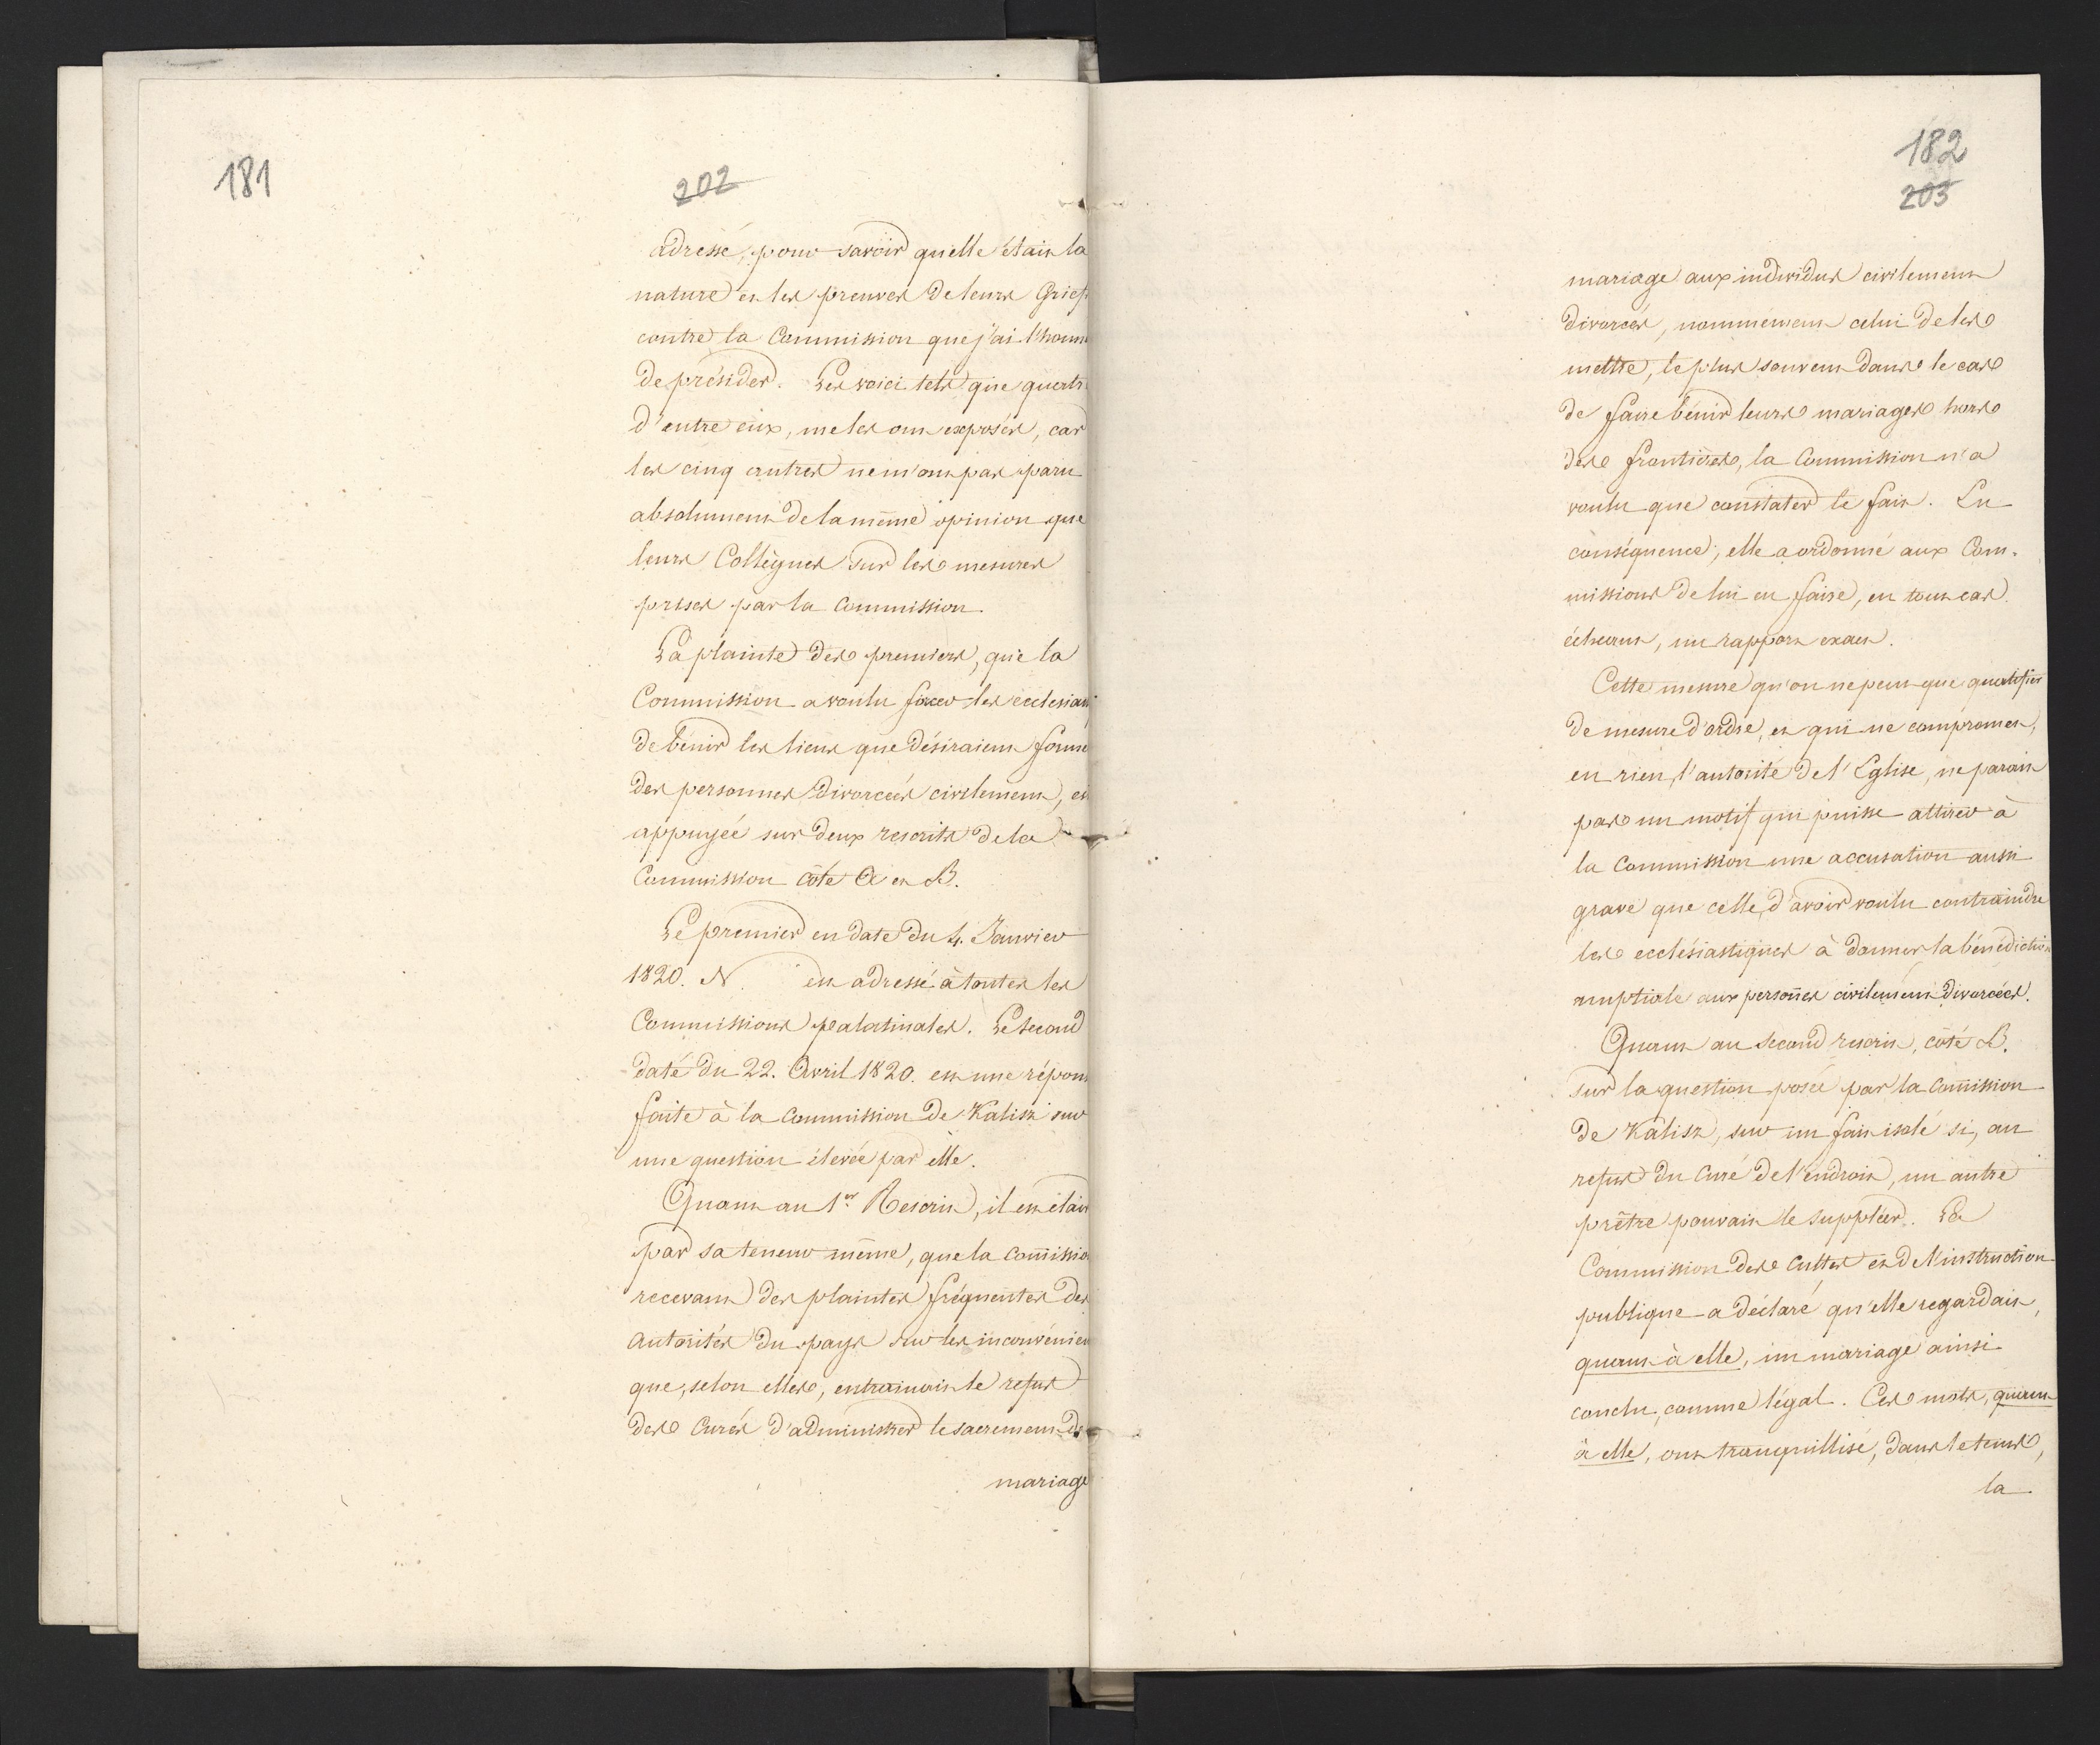 181
202
adressé, pour savoir quelle était la
nature et les preuves de leurs Griefs
contre la Commission que j'ai l'honn
de présider. Les voici tels que quatr
d'entre eux, me les ont exposés, car
les cinq autres ne m'ont pas paru
absolument de la même opinion que
leurs Collègues sur les mesures
prises par la Commission.
La plainte des premiers, que la
Commission a voulu forcer les ecclesiast
de bénir les liens que désiraient forme
des personnes divorcées civilement, est
appuyée sur deux rescrits de la
Commission côté A et B.
Le premier en date du 4. Janvier
1820. N. est adressé à toutes les
Commissions palatinales. Le second
daté du 22. Avril 1820. est une répons
faite à la Commission de Kalisz sur
une question élevée par elle.
Quant au 1er Rescrit, il est clair
par sa teneur même, que la Com̄issio
recevant des plaintes fréquentes des
autorités du pays sur les inconvénien
que, selon elles, entrainait le refus
des Curés d'administrer le sacrement de
mariage
182
203
mariage aux individus civilement
divorcés, nommément celui de les
mettre, le plus souvent dans le cas
de faire bénir leurs mariages hors
des frontières, la Commission n'a
voulu que constater le fait. En
conséquence, elle a ordonné aux Com-
missions de lui en faire, en tout cas
échéant, un rapport exact.
Cette mesure qu'on ne peut que qualifier
de mesure d'ordre, et qui ne compromet,
en rien, l'autorité de l'Eglise, ne parait
pas un motif qui puisse attirer à
la Commission une accusation aussi
grave que celle, d'avoir voulu contraindre
les ecclésiastiques à donner la bénédiction
nuptiale aux personnes civilement divorcées.
Quant au second rescrit, côté B.
sur la question posée par la Com̄ission
de Kalisz, sur un fait isolé si, au
refus du Curé de l'endroit, un autre
prêtre pouvait le suppléer. La
Commission des Cultes et de l'instruction
publique a déclaré qu'elle regardait,
quant à elle, un mariage ainsi
conclu, comme légal. Ces mots, quant
à elle, ont tranquillisé, dans le tems,
la